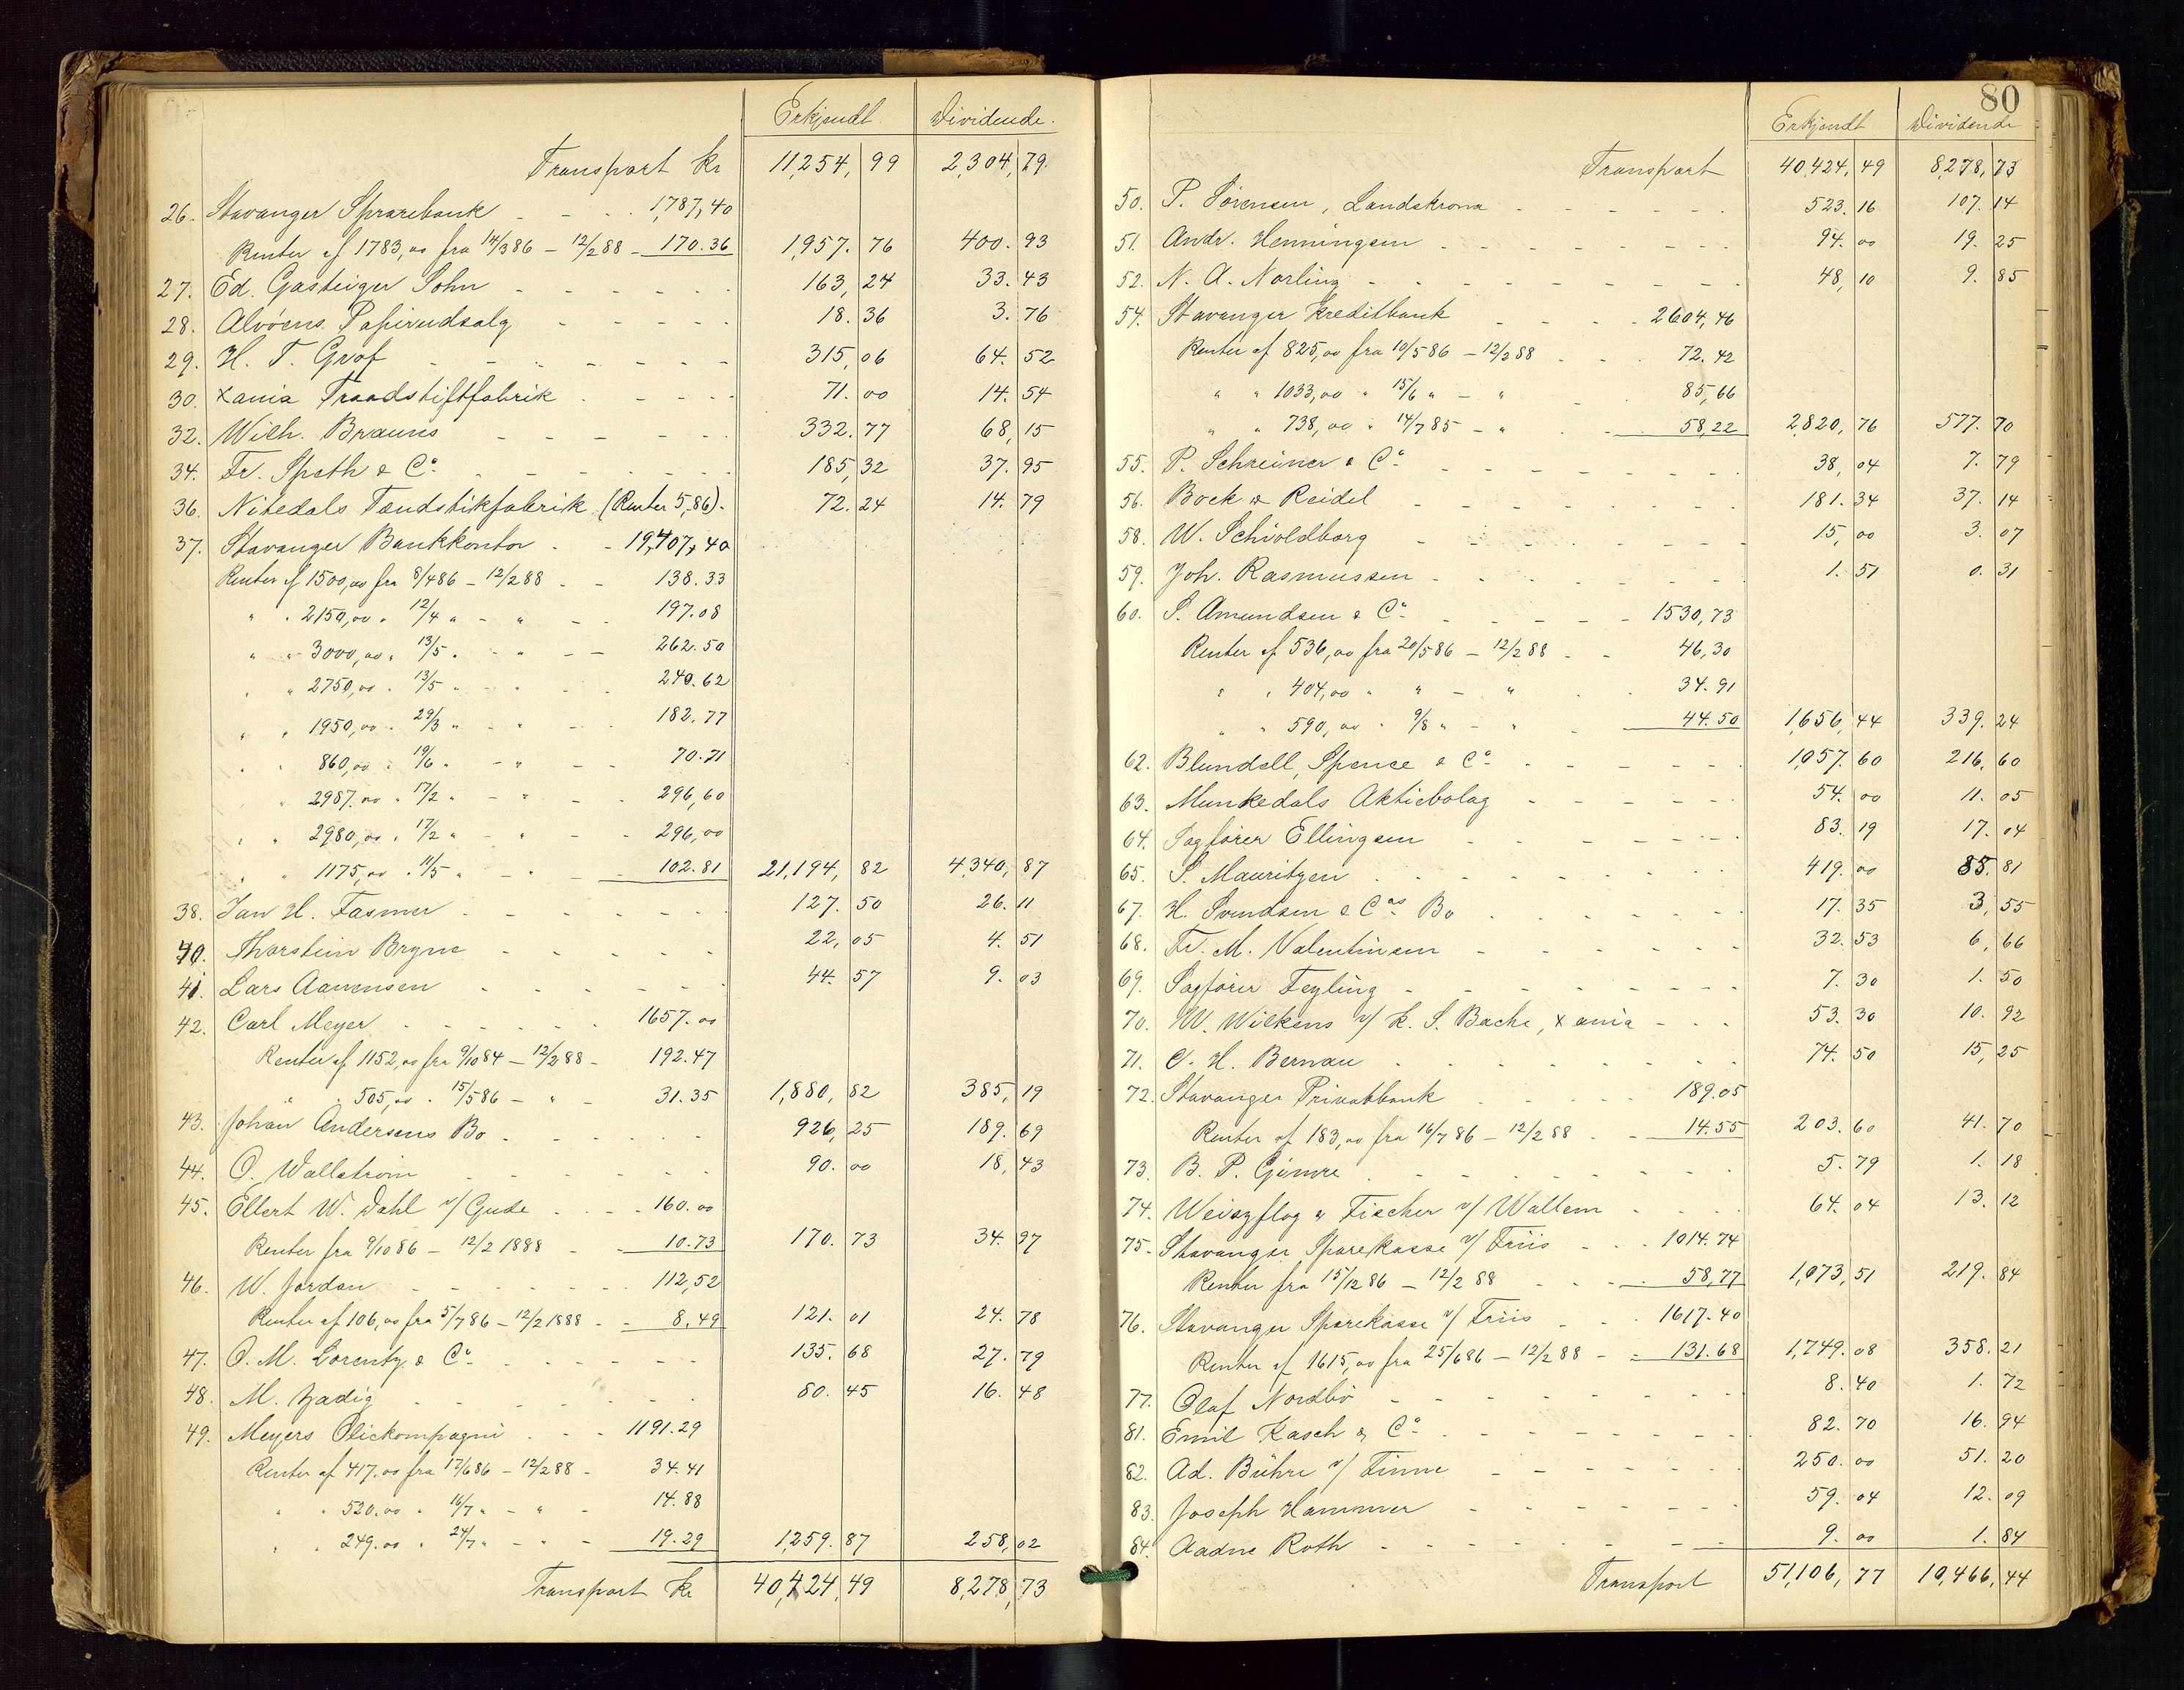 Erkjendt. Dividende.
Transport kr 11,254,99 2,304,79.
26. Stavanger Sprarebank - - - 1,787,40
Renter af 1783,00 fra 14/3 86 - 12/2 88 - 170.36 1,957.76 400.93
27. Ed. Gasteiger Sohn - - - - - 163,24 33.43
28. Alvøens Papirudsalg - - - - - 18.36 3.76
29. H. T. Grof - - - - - - - 315,06 64.52
30. Xania Traadstiftfabrik - - - - 71.00 14.54
32. Wilh. Brauns - - - - - - 332.77 68,15
34. Fr. Speth & Co. - - - - - - 185,32 37.95
36. Nitedals Tændstikfabrik (Renter 5,86). 72.24 14.79
37. Stavanger Bankkontor - - 19,407,40
Renter af 1500,00 fra 8/4 86 - 12/2 88 - - 138.33
" " 2150,00 " 12/4 " - " - - 197.08
" " 3000,00 " 13/5 " - " - - 262.50
" " 2750,00 " 13/5 " - " - - 240.62
" " 1950,00 " 29/3 " - " - - 182.77
" " 860,00 " 19/6 " - " - - 70.71
" " 2987.00 " 17/2 " - " - - 296,60
" " 2980,00 " 17/2 " - " - - 296,00
" " 1175,00 " 11/5 " - " - - 102.81 21,194,82 4,340,87
38. Jan H. Fasmer - - - - - - 127.50 26.11
40. Thorstein Bryne - - - - - 22,05 4.51
41. Lars Aanensen - - - - - - 44.57 9.03
42. Carl Meyer - - - - - - 1657.00
Renter af 1152,00 fra 9/10 84 - 12/2 88 - 192.47
" " 505,00 " 15/5 86 - " - 31.35 1,880,82 385,19
43. Johan Andersens Bo - - - - - - 926,25 189.69
44. O. Wallstrøm - - - - - - 90.00 18,43
45. Ellert W. Dahl v/ Gude - - - 160.00
Renter fra 9/10 86 - 12/2 1888 - - 10.73 170.73 34.97
46. W. Jordan - - - - - - 112,52
Renter af 106,00 fra 5/7 86 - 12/2 1888 - - 8.49 121.01 24.78
47. O. M. Lorentz & Co. - - - - - - 135.68 27.79
48. M. Zadig - - - - - - - 80.45 16.48
49. Meyers Oliekompagni - - - 1191.29
Renter af 417.00 fra 17/6 86 - 12/2 88 - 34.41
" " 520.00 " 16/7 " - " - 14.88
" " 249.00 " 24/7 " - " - 19.29 1,259.87 258,02
Transport kr 40,424,49 8,278,73
80
Erkjendt Dividende
Transport 40,424,49 8,278,73
50. P. Sørensen, Landskrona - - - - - - 523.16 107.14
51. Andr. Henningsen - - - - - - - 94.00 19.25
52. N. A. Norling - - - - - - - - 48,10 9.85
54. Stavanger Kreditbank - - - - 2604,46
Renter af 825,00 fra 10/5 86 - 12/2 88 - - - 72.42
" " 1033,00 " 15/6 " - " - 85,66
" " 738,00 " 14/7 85 - " - - 58,22 2,820,76 577.70
55. P. Schreiner & Co. - - - - - - - 38,04 7.79
56. Bock & Reidel - - - - - - - 181.34 37.14
58. W. Schioldborg - - - - - - - 15,00 3.07
59. Joh. Rasmussen - - - - - - - 1.51 0.31
60. S. Amundsen & Co. - - - - - 1530,73
Renter af 536,00 fra 20/5 86 - 12/2 88 - - 46,30
" " 404,00 " " - " - - 34.91
" " 590,00 " 9/8 " - " - 44.50 1,656,44 339.24
62. Blundell, Spence & Co. - - - - - - 1,057.60 216.60
63. Munkedals Aktiebolag - - - - - - 54.00 11.05
64. Sagfører Ellingsen - - - - - - 83.19 17.04
65. S. Mauritzen - - - - - - - - 419.00 85.81
67. H. Svendsen & Cos. Bo - - - - - - 17.35 3,55
68. Fr. M. Valentinsen - - - - - - 32.53 6,66
69. Sagfører Feyling - - - - - - - - 7.30 1.50
70. W. Wilkens v/ K. S. Bache, Xania - - - 53.30 10.92
71. C. H. Bernau - - - - - - - - 74.50 15,25
72. Stavanger Privatbank - - - - 189.05
Renter af 183,00 fra 16/7 86 - 12/2 88 - - 14.55 203.60 41.70
73. B. P. Gimre - - - - - - - - 5.79 1.18
74. Weiszflog & Fischer v/ Wallem - - - - 64.04 13.12
75. Stavanger Sparekasse v/ Friis - - - 1014.74
Renter fra 15/12 86 - 12/2 88 - - - 58,77 1,073,51 219.84
76. Stavanger Sparekasse v/ Friis - - - 1617.40
Renter af 1615,00 fra 25/6 86 - 12/2 88 - - 131.68 1,749.08 358.21
77. Olaf Nordbø - - - - - - - - 8.40 1.72
81. Emil Kasch & Co. - - - - - - - - 82.70 16.94
82. Ad. Bühre v/ Finne - - - - - - 250.00 51.20
83. Joseph Hammer - - - - - - - 59.04 12.09
84. Aadne Roth - - - - - - - - 9.00 1.84
Transport 51,106,77 10,466,44